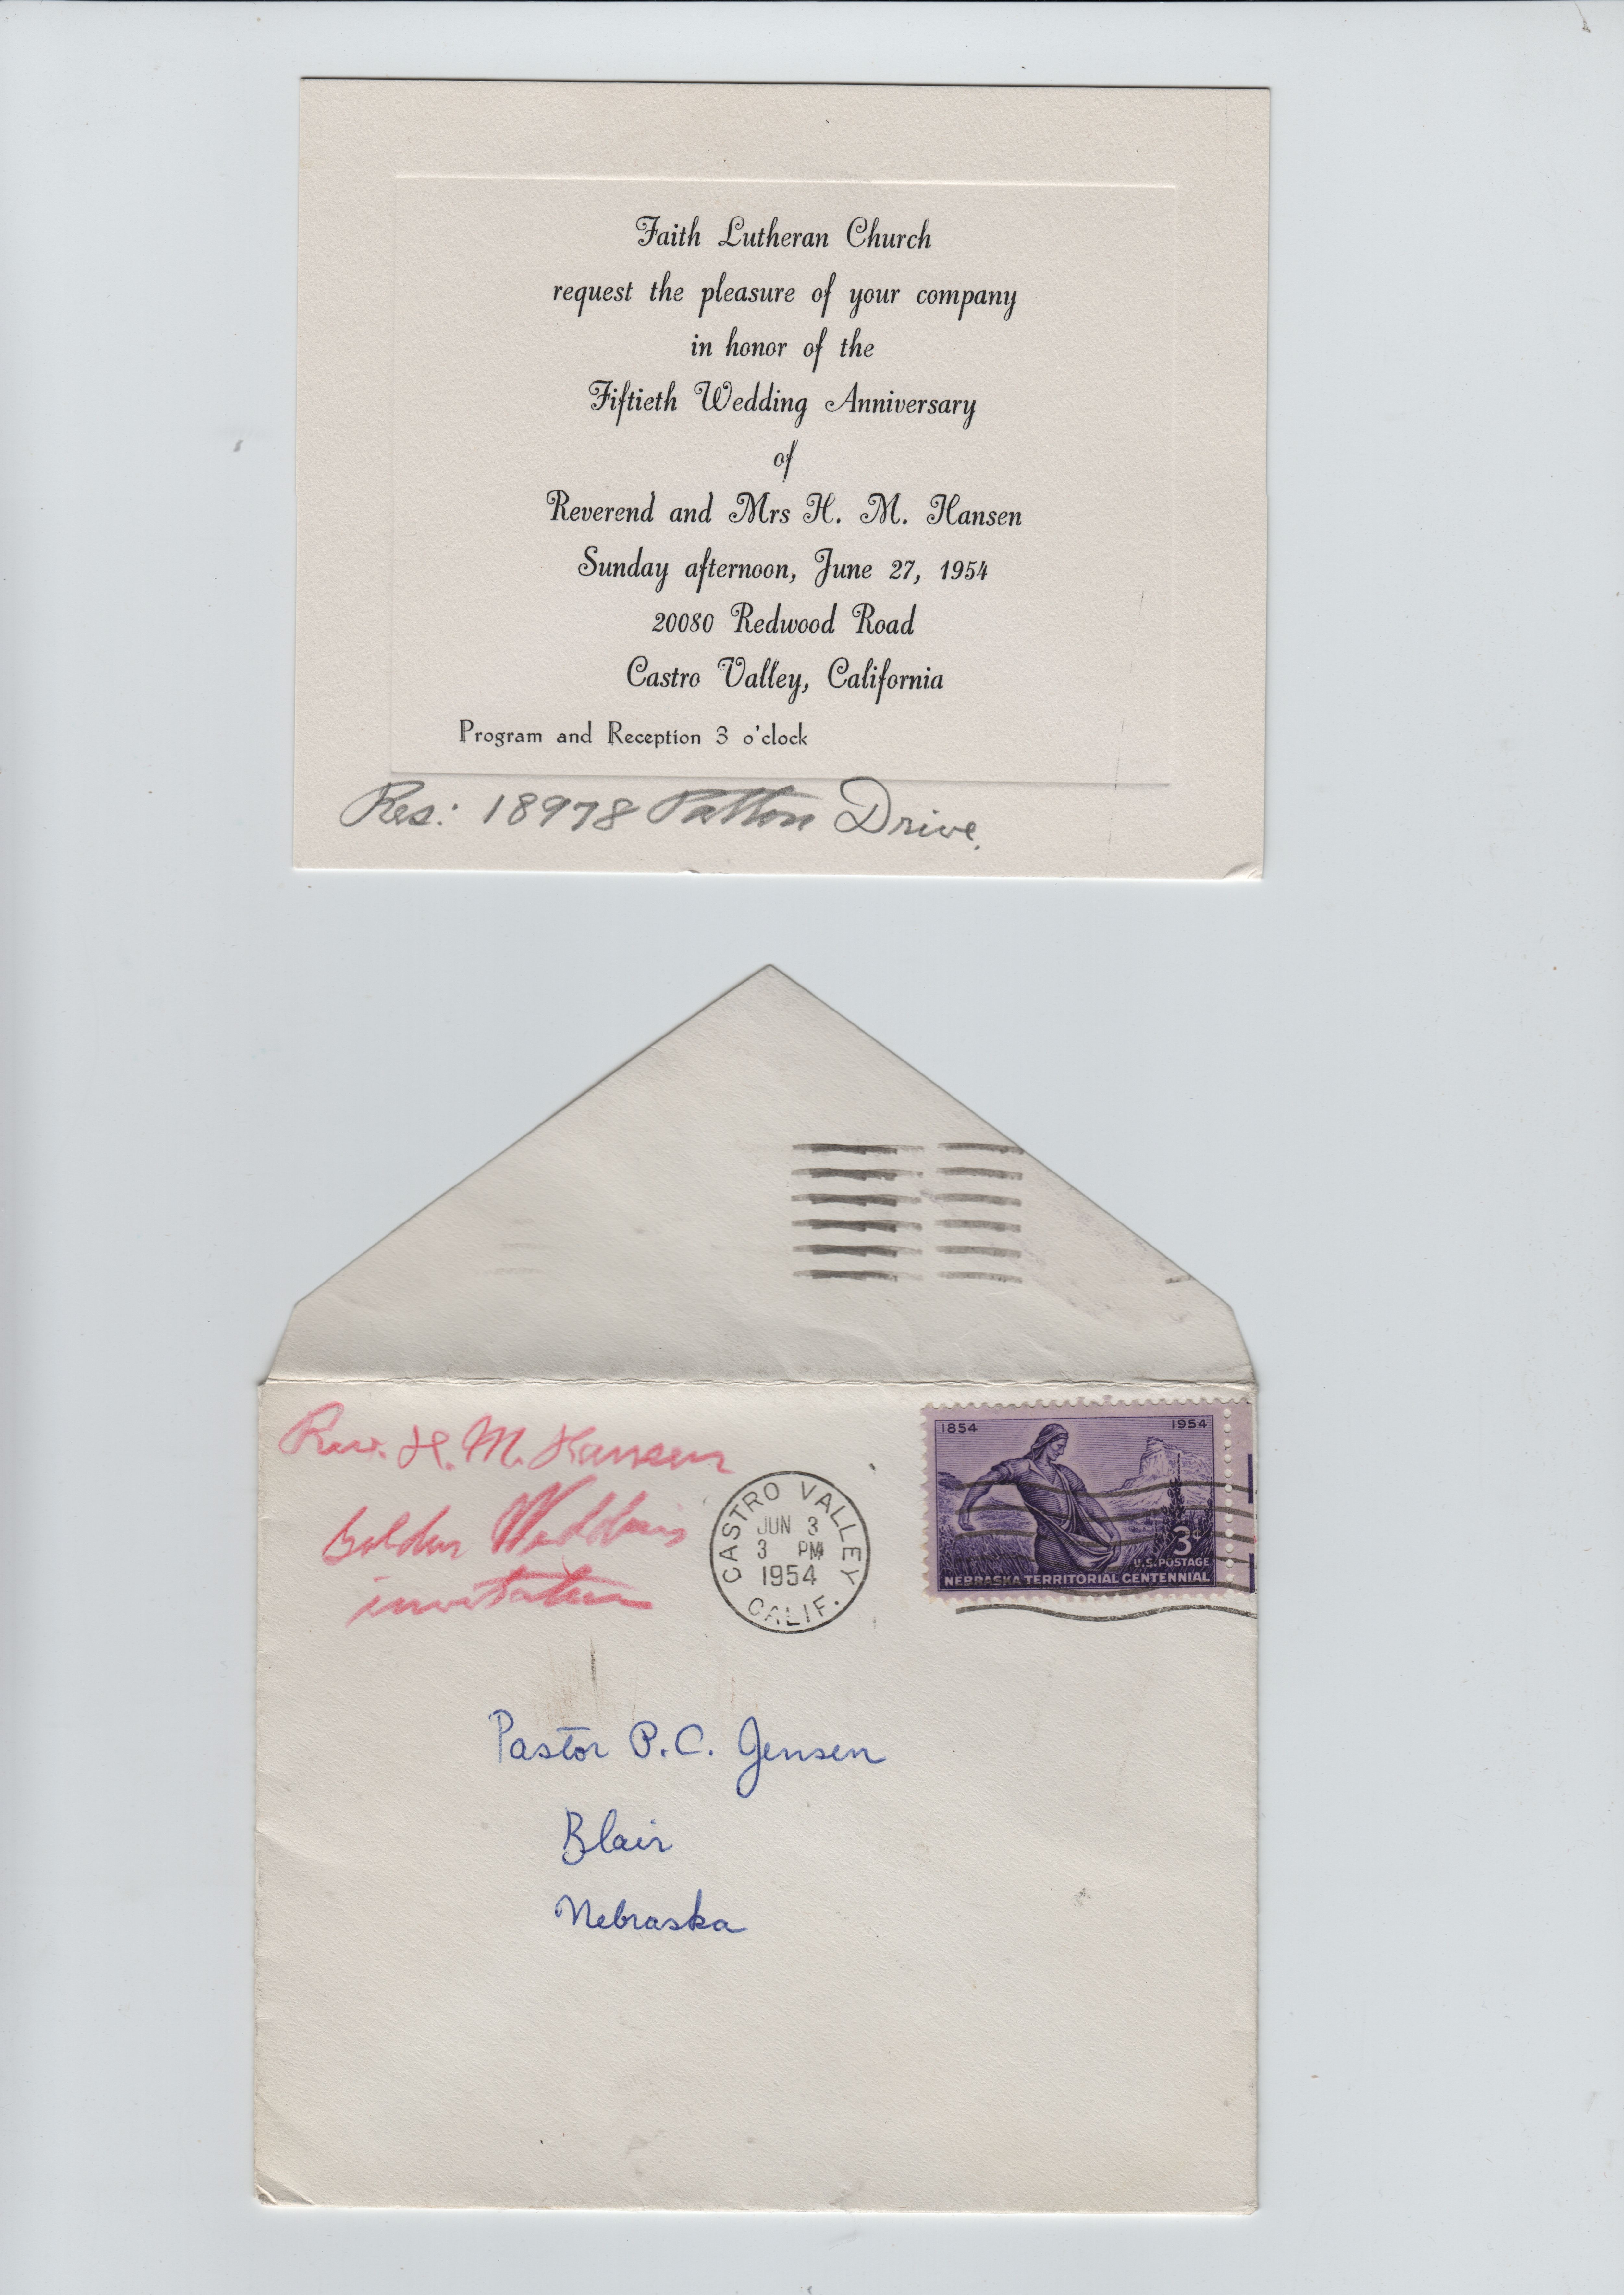 Faith Lutheran Church
request the pleasure of your company
in honor of the
Fiftieth Wedding Anniversary
of
Reverend and Mrs H. M. Hansen
Sunday afternoon, June 27, 1954
20080 Redwood Road
Castro Valley, California
Program and Reception 3 o'clock
Res: 18978 Patton Drive.
Rev. H. M. Hansen
Golden Wedding
invitation
CASTRO VALLEY
JUN 3
3 PM
1954
CALIF.
1854 1954
3¢
U.S. POSTAGE
NEBRASKA TERRITORIAL CENTENNIAL
Pastor P. C. Jensen
Blair
Nebraska